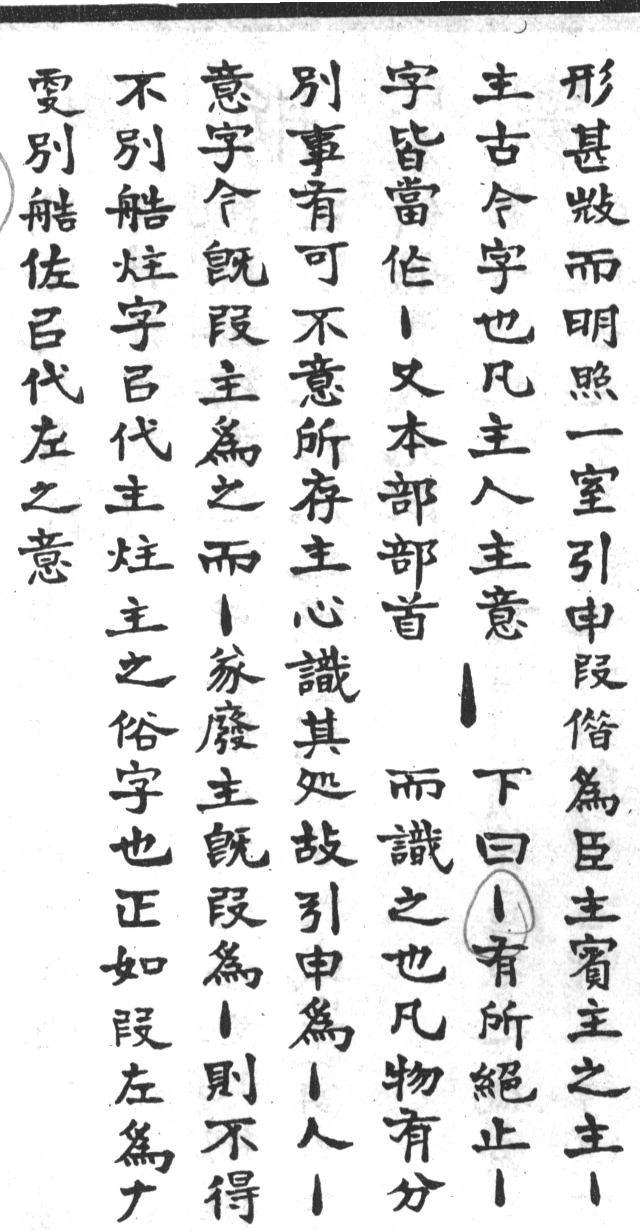 形甚𢼸而明照一室引申叚偺為臣主賓主之主丶
主古今字也凡主人主意丶下曰丶有所絕止丶
字皆當作丶又本部部首 而識之也凡物有分
別事有可不意所存主心識其処故引申為丶人丶
意字今旣叚主為之而丶㒸廢主旣叚為丶則不得
不別艁炷字㠯代主炷主之俗字也正如叚左為𠂇
別艁佐㠯代左之意